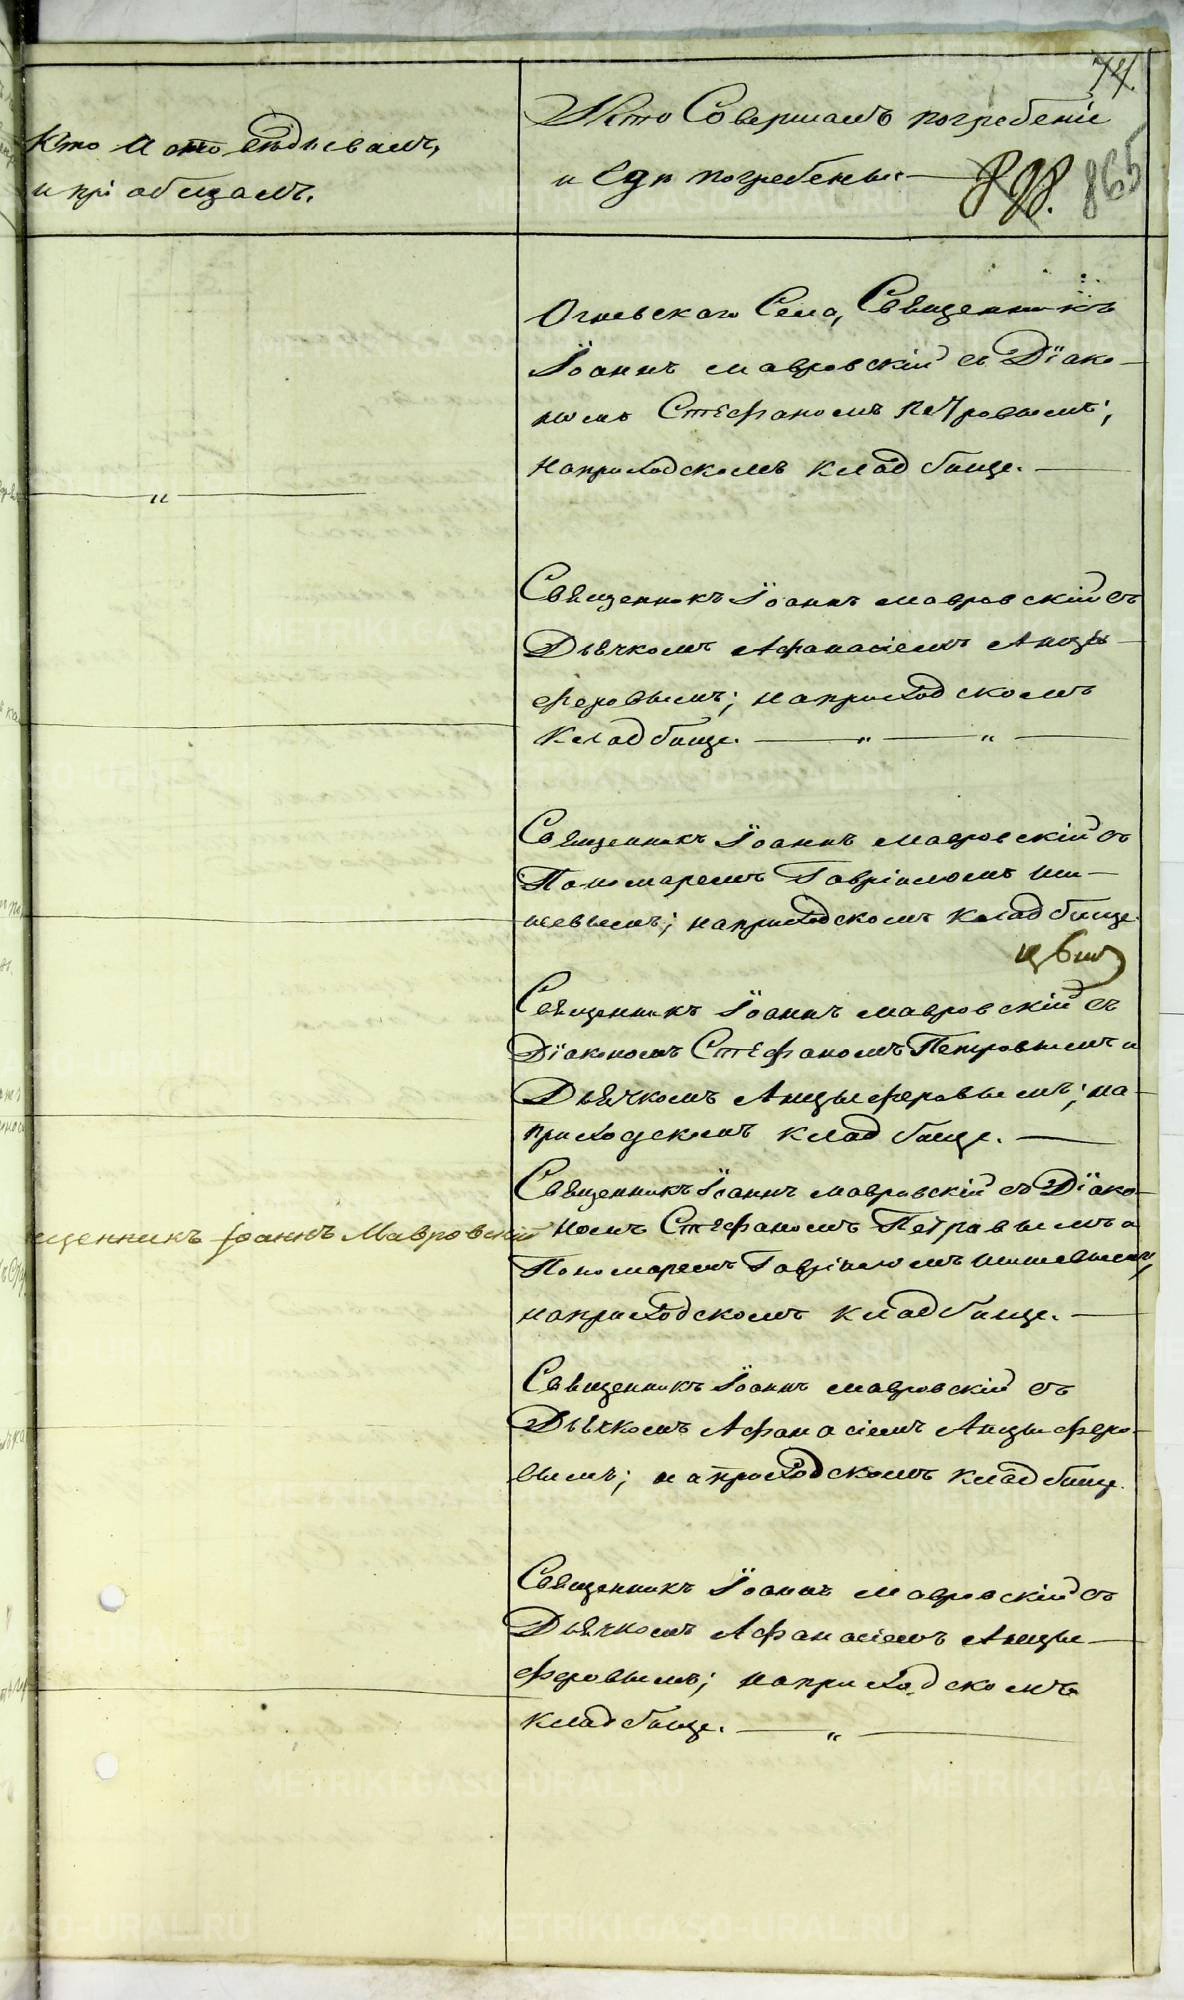 74.
Кто исповѣдывалъ,
и пріобщалъ.
Кто Совершалъ погребеніе
и гдѣ погребены.
898. 865
Огневскаго Села, Священникъ
Іоаннъ Мавровскій съ Діако-
номъ Стефаномъ Петровымъ;
на приходскомъ кладбище.
Священникъ Іоаннъ Мавровскій съ
Дьячкомъ Афанасіемъ Анцы-
феровымъ; на приходскомъ
кладбище.
Священникъ Іоаннъ Мавровскій съ
Пономаремъ Гавріиломъ Ши-
шевымъ; на приходскомъ кладбище.
Священникъ Іоаннъ Мавровскій съ
Діакономъ Стефаномъ Петровымъ и
Дьячкомъ Анцыферовымъ; на-
приходскомъ кладбище.
щенникъ Іоаннъ Мавровскій
Священникъ Іоаннъ Мавровскій съ Діако-
номъ Стефаномъ Петровымъ и
Пономаремъ Гавріиломъ Шишевымъ,
на приходскомъ кладбище.
Священникъ Іоаннъ Мавровскій съ
Дьячкомъ Афанасіемъ Анцыферо-
вымъ; на приходскомъ кладбище.
Священникъ Іоаннъ Мавровскій съ
Дьячкомъ Афанасіемъ Анцы-
феровымъ; на приходскомъ
кладбище.
METRIKI.GASO-URAL.RU